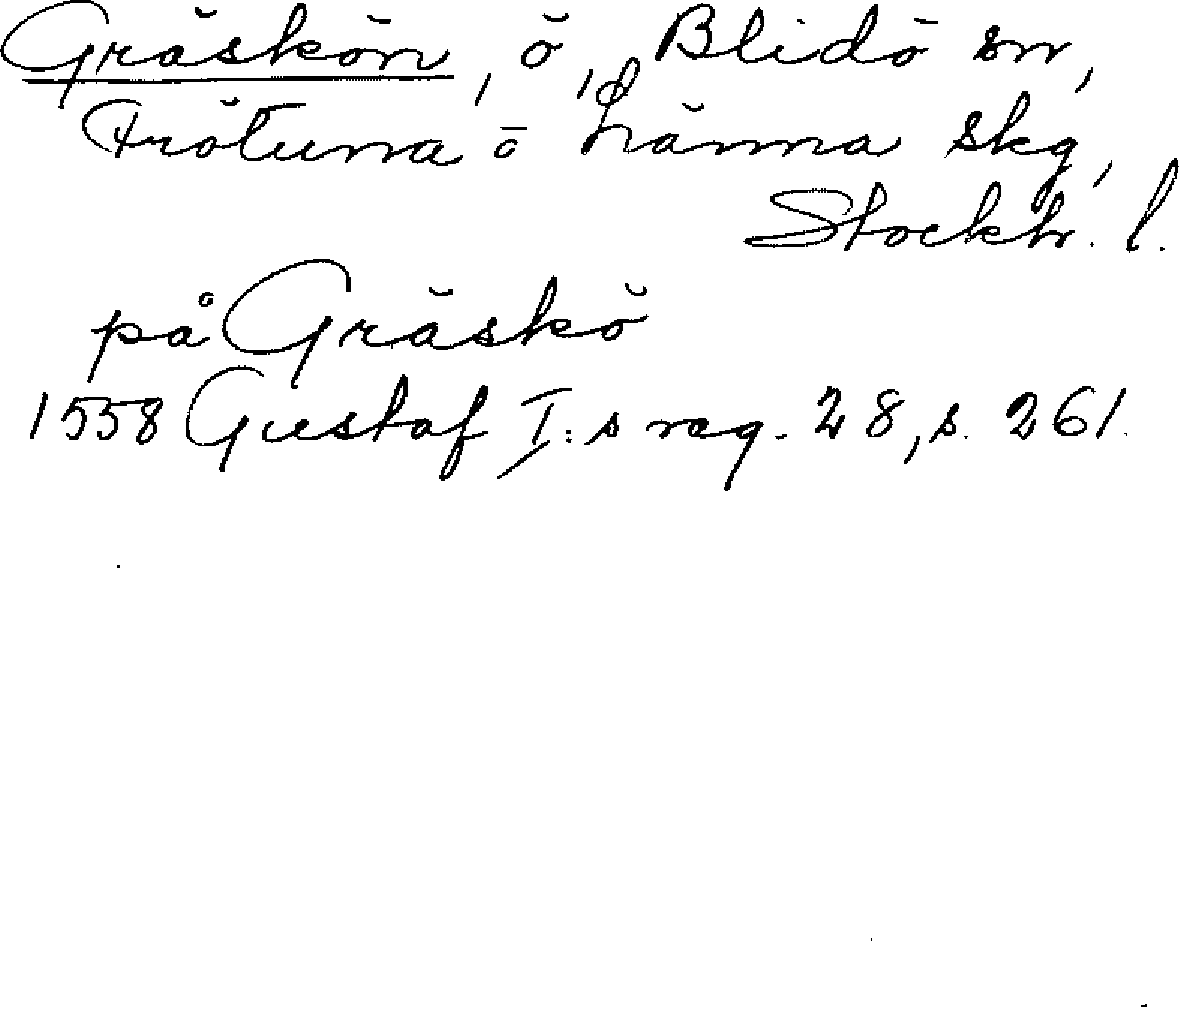 Gräskön, ö, Blidö sn,
Frötuna o Länna skg,
Stockh. l.
på Gräskö
1558 Gustaf I:s reg. 28, s. 261.